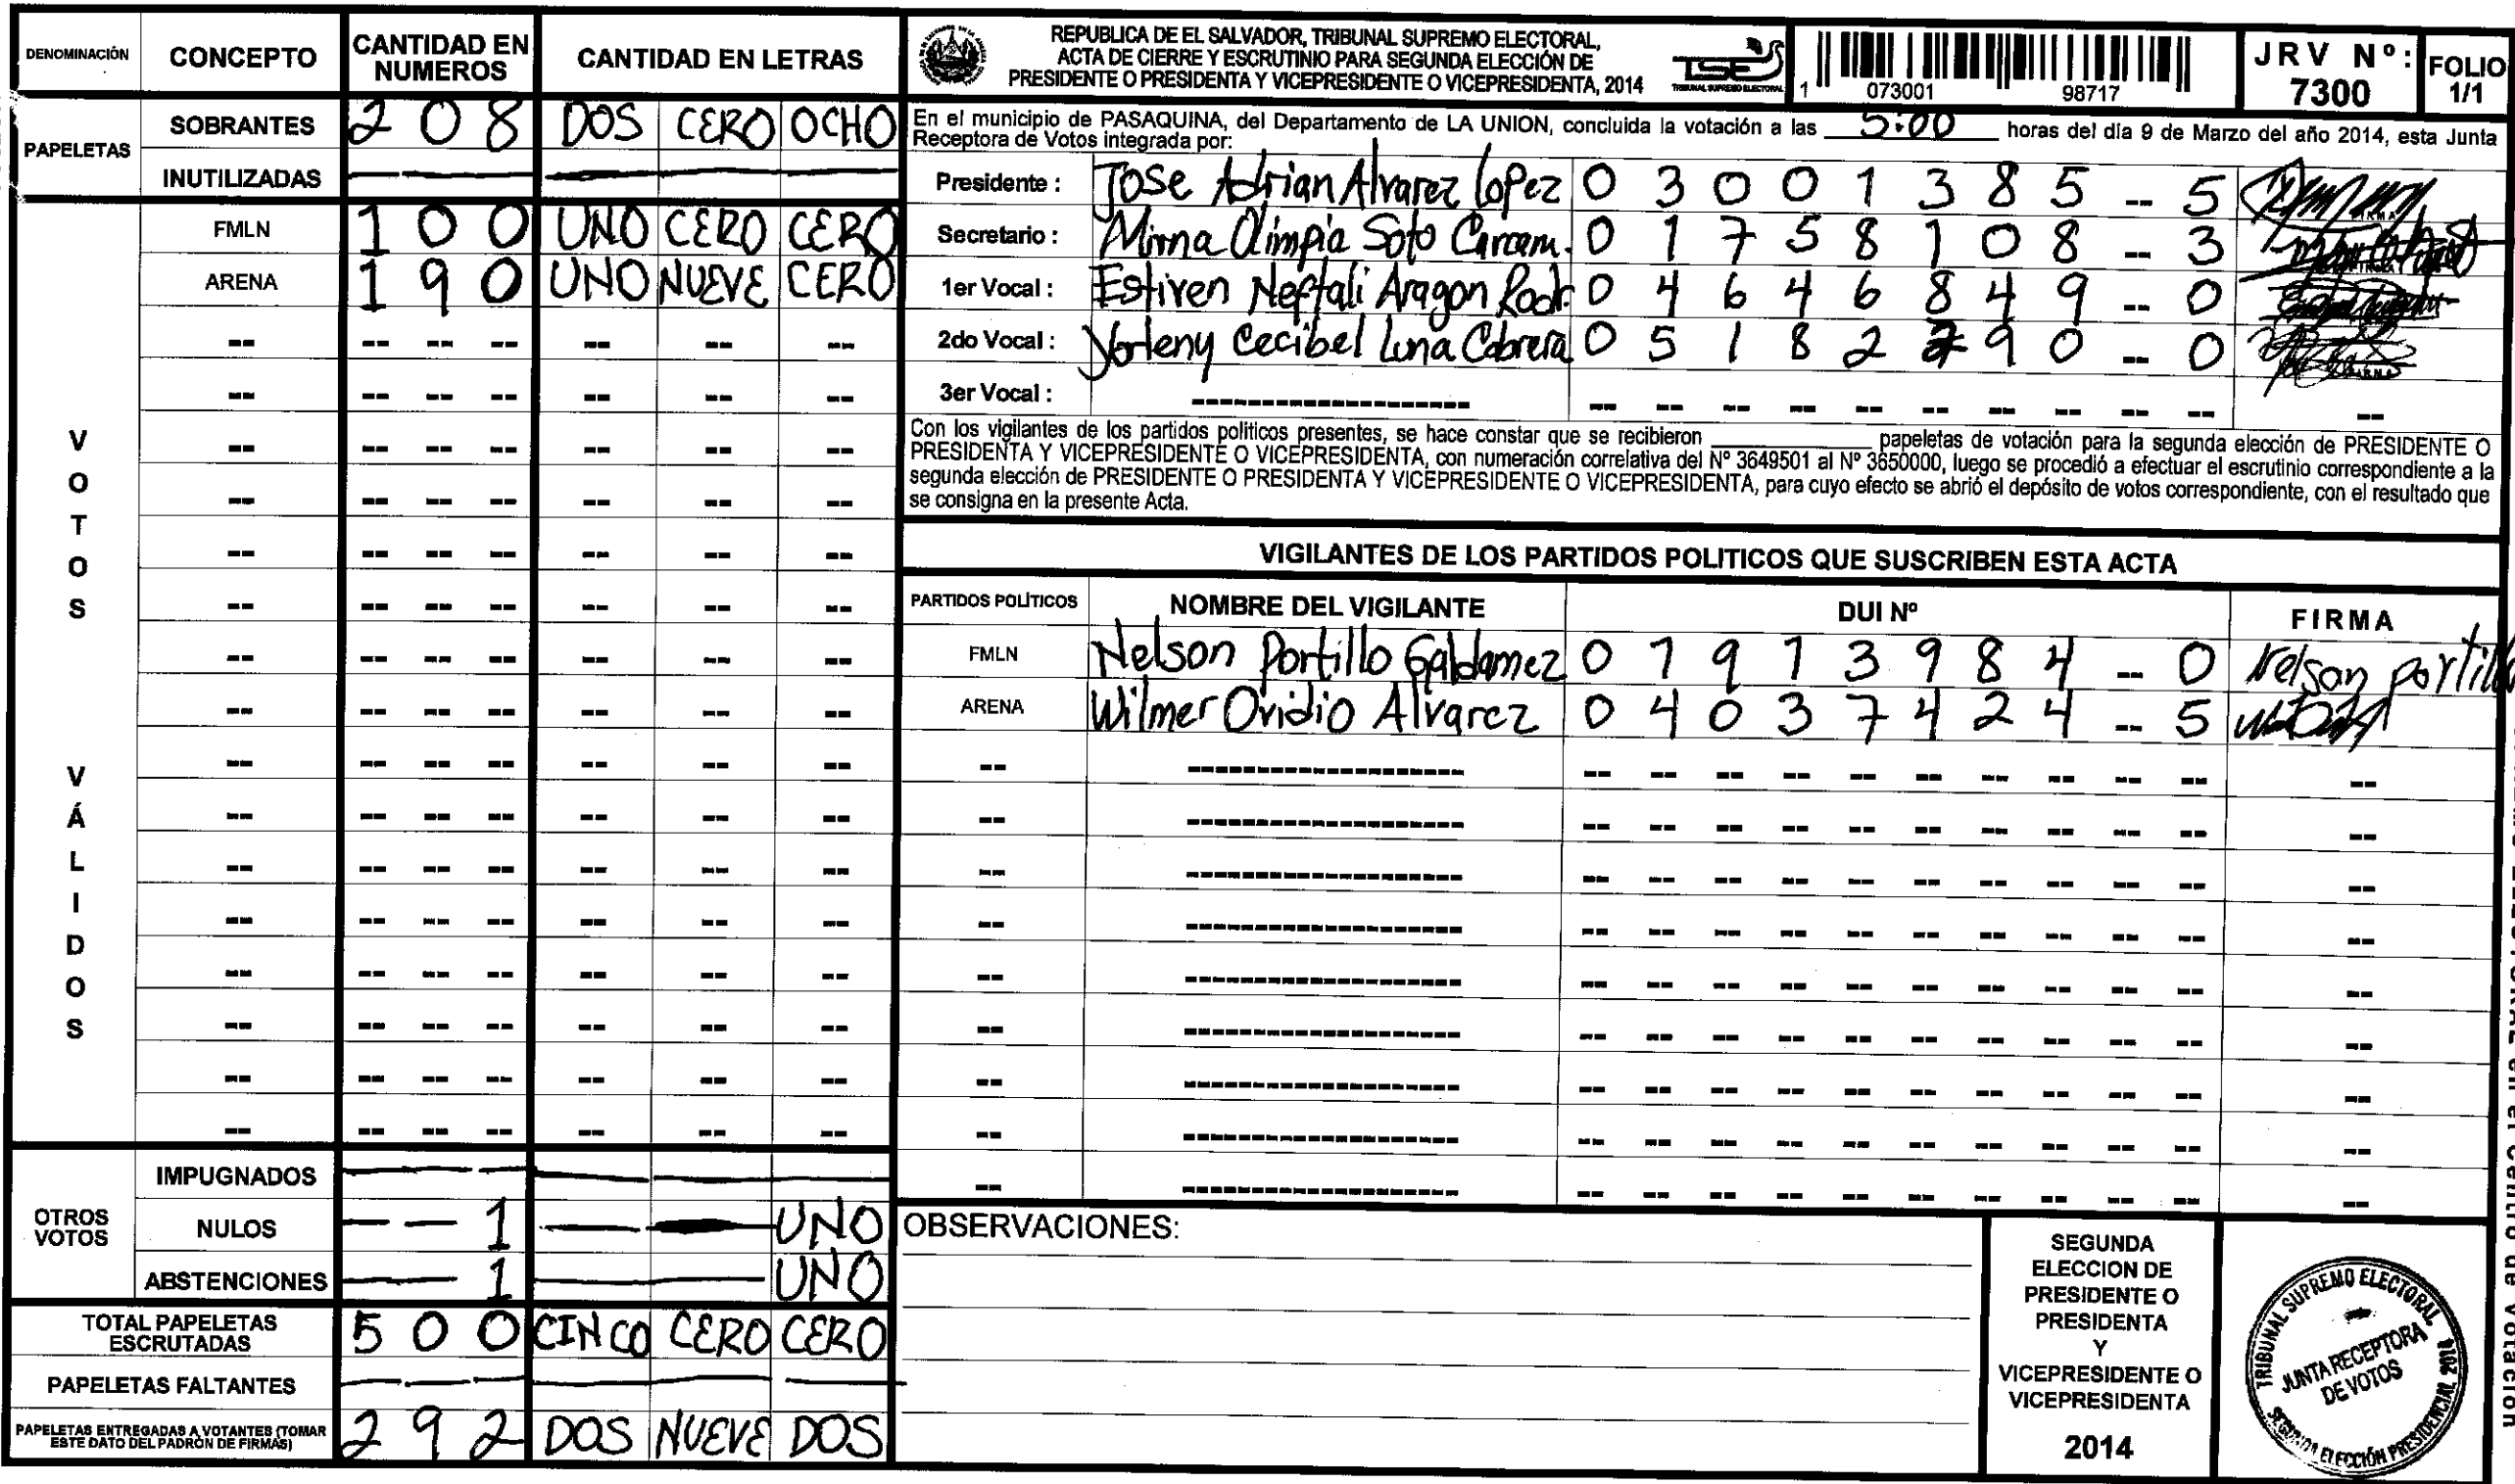 DENOMINACIÓN CONCEPTO CANTIDAD EN NUMEROS CANTIDAD EN LETRAS
PAPELETAS
SOBRANTES 2 0 8 DOS CERO OCHO
INUTILIZADAS
VOTOS VÁLIDOS
FMLN 1 0 0 UNO CERO CERO
ARENA 1 9 0 UNO NUEVE CERO
OTROS VOTOS
IMPUGNADOS
NULOS 1 UNO
ABSTENCIONES 1 UNO
TOTAL PAPELETAS ESCRUTADAS 5 0 0 CINCO CERO CERO
PAPELETAS FALTANTES
PAPELETAS ENTREGADAS A VOTANTES (TOMAR ESTE DATO DEL PADRÓN DE FIRMAS) 2 9 2 DOS NUEVE DOS
REPUBLICA DE EL SALVADOR, TRIBUNAL SUPREMO ELECTORAL,
ACTA DE CIERRE Y ESCRUTINIO PARA SEGUNDA ELECCIÓN DE
PRESIDENTE O PRESIDENTA Y VICEPRESIDENTE O VICEPRESIDENTA, 2014
TSE
TRIBUNAL SUPREMO ELECTORAL
1 073001 98717
JRV Nº: 7300
FOLIO 1/1
En el municipio de PASAQUINA, del Departamento de LA UNION, concluida la votación a las 5:00 horas del día 9 de Marzo del año 2014, esta Junta
Receptora de Votos integrada por:
Presidente : Jose Adrian Alvarez Lopez 0 3 0 0 1 3 8 5 -- 5
Secretario : Mirna Olimpia Soto Carcam. 0 1 7 5 8 1 0 8 -- 3
1er Vocal : Estiven Neftali Aragon Rodr. 0 4 6 4 6 8 4 9 -- 0
2do Vocal : Yorleny Cecibel Luna Cabrera 0 5 1 8 2 2 9 0 -- 0
3er Vocal :
Con los vigilantes de los partidos politicos presentes, se hace constar que se recibieron papeletas de votación para la segunda elección de PRESIDENTE O
PRESIDENTA Y VICEPRESIDENTE O VICEPRESIDENTA, con numeración correlativa del Nº 3649501 al Nº 3650000, luego se procedió a efectuar el escrutinio correspondiente a la
segunda elección de PRESIDENTE O PRESIDENTA Y VICEPRESIDENTE O VICEPRESIDENTA, para cuyo efecto se abrió el depósito de votos correspondiente, con el resultado que
se consigna en la presente Acta.
VIGILANTES DE LOS PARTIDOS POLITICOS QUE SUSCRIBEN ESTA ACTA
PARTIDOS POLÍTICOS NOMBRE DEL VIGILANTE DUI Nº FIRMA
FMLN Nelson Portillo Galdamez 0 1 9 1 3 9 8 4 -- 0 Nelson Portillo
ARENA Wilmer Ovidio Alvarez 0 4 0 3 7 4 2 4 -- 5
OBSERVACIONES:
SEGUNDA
ELECCION DE
PRESIDENTE O
PRESIDENTA
Y
VICEPRESIDENTE O
VICEPRESIDENTA
2014
TRIBUNAL SUPREMO ELECTORAL
JUNTA RECEPTORA
DE VOTOS
SEGUNDA ELECCIÓN PRESIDENCIAL 2014
en el centro de votación